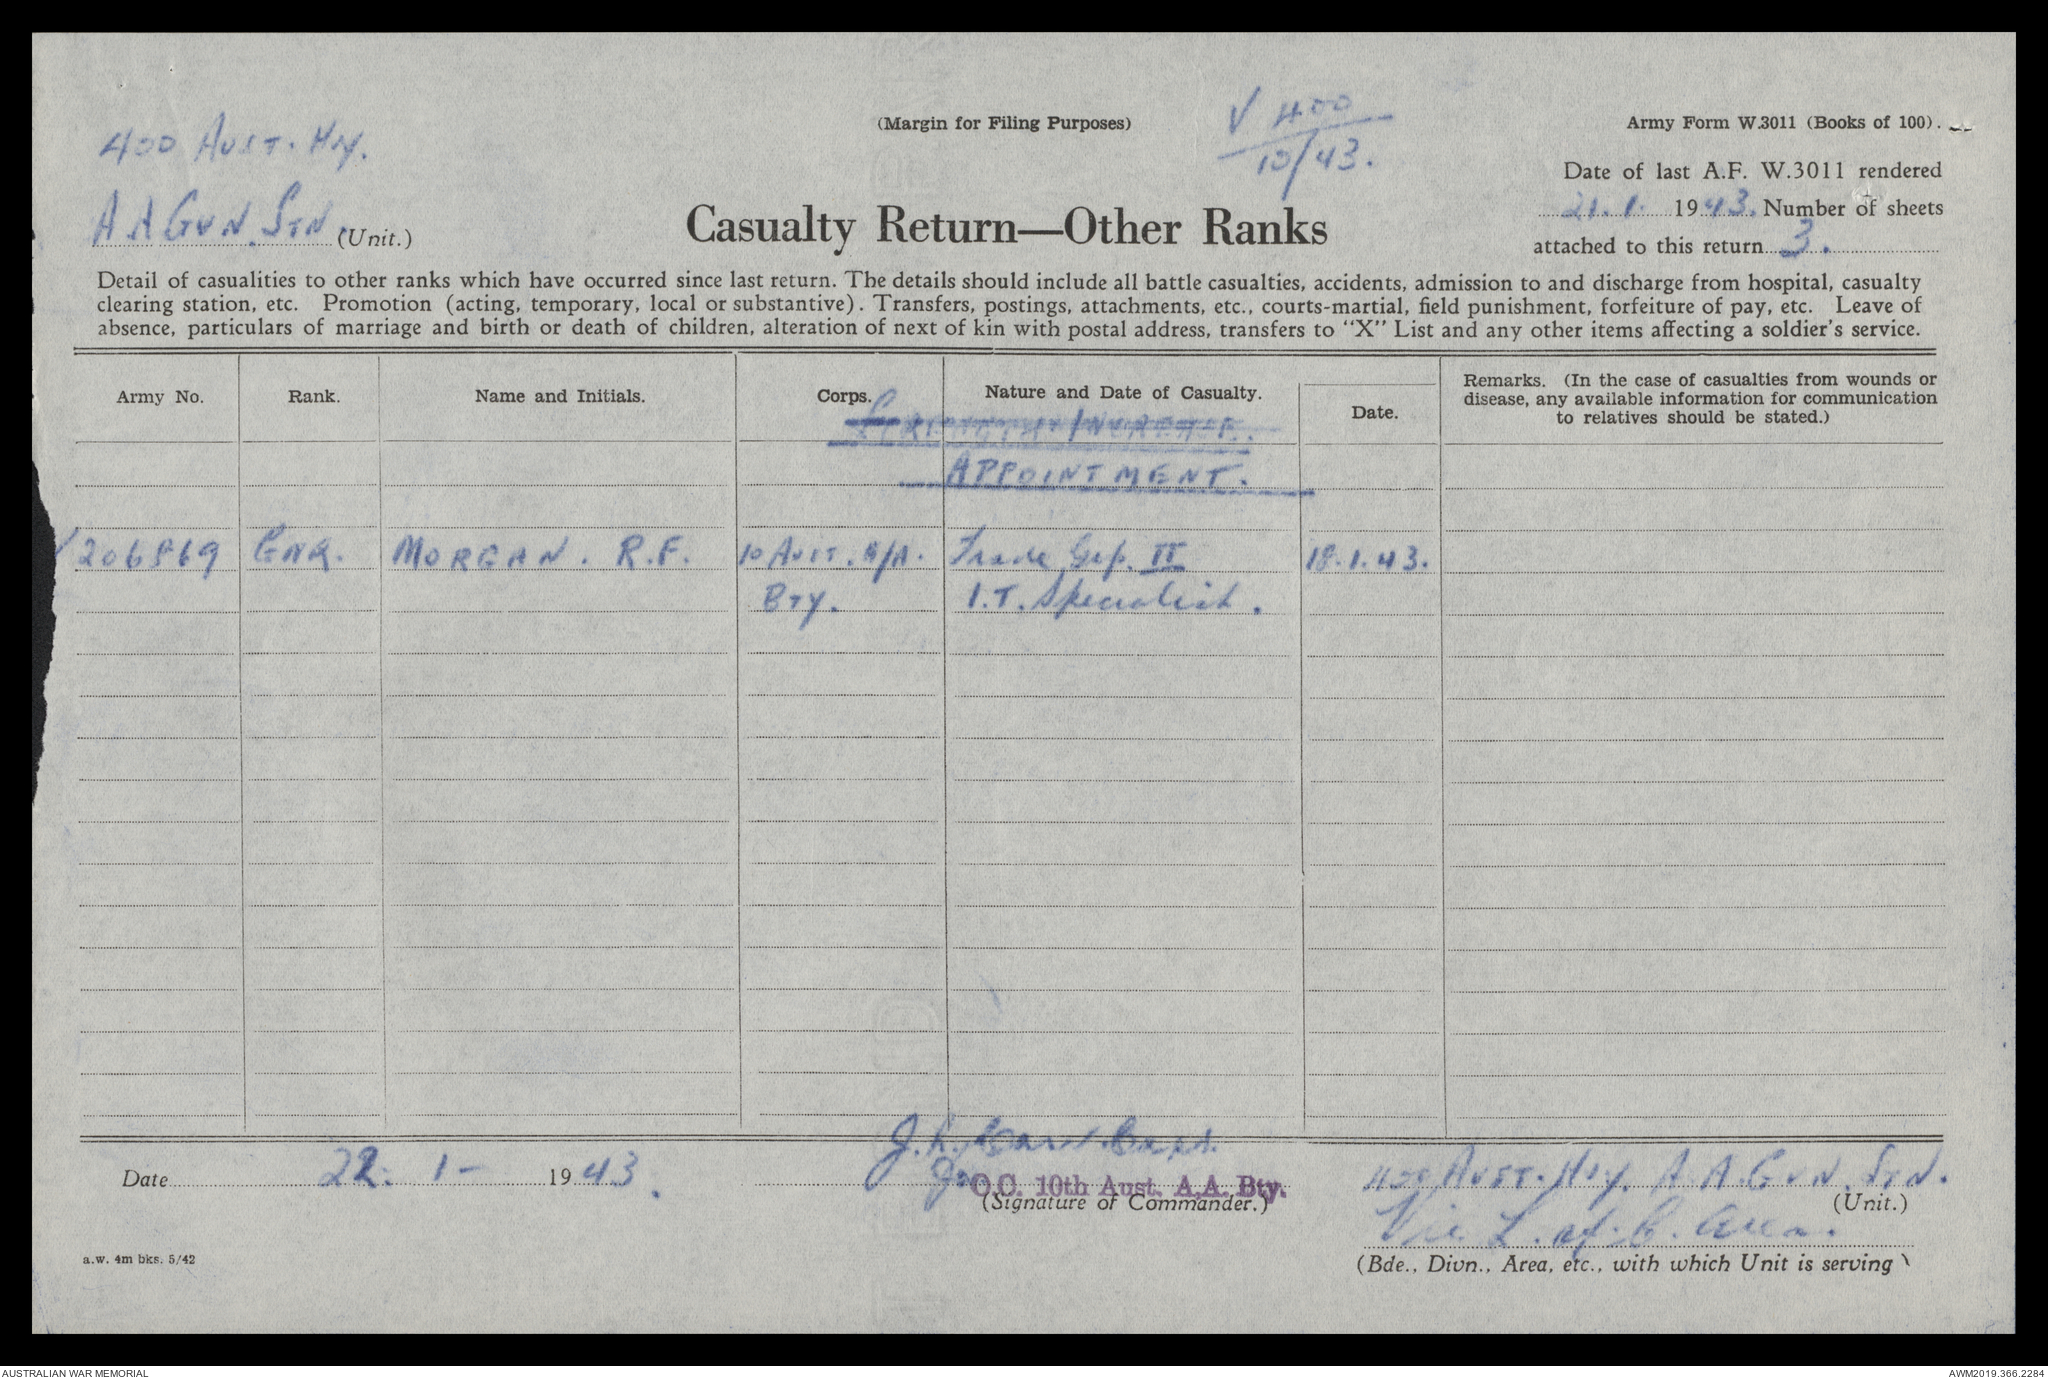 (Margin for Filing Purposes)
V 400
10/43.
Army Form W.3011 (Books of 100).
400 Aust. Hvy.
A A Gun. Stn. (Unit.)
Date of last A.F. W.3011 rendered
21.1. 1943. Number of sheets
attached to this return 3.
Casualty Return—Other Ranks
Detail of casualities to other ranks which have occurred since last return. The details should include all battle casualties, accidents, admission to and discharge from hospital, casualty
clearing station, etc. Promotion (acting, temporary, local or substantive). Transfers, postings, attachments, etc., courts-martial, field punishment, forfeiture of pay, etc. Leave of
absence, particulars of marriage and birth or death of children, alteration of next of kin with postal address, transfers to "X" List and any other items affecting a soldier's service.
Army No. Rank. Name and Initials. Corps. Nature and Date of Casualty. Date. Remarks. (In the case of casualties from wounds or
disease, any available information for communication
to relatives should be stated.)
Strength Increase.
APPOINTMENT.
V206869 Gnr. MORGAN. R.F. 10 Aust. A/A. Trade Grp. II 18.1.43.
Bty. I.T. Specialist.
Date 22. 1- 1943.
O.C. 10th Aust. A.A. Bty.
(Signature of Commander.)
400 Aust. Hvy. A.A. Gun. Stn.
(Unit.)
Vic L. of C. Area.
(Bde., Divn., Area, etc., with which Unit is serving)
a.w. 4m bks. 5/42
AUSTRALIAN WAR MEMORIAL
AWM2019.366.2284